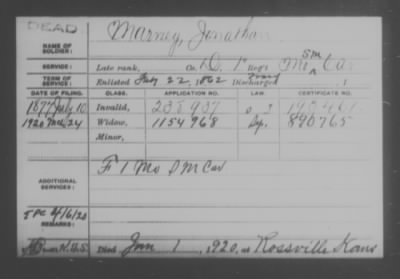 DEAD
NAME OF SOLDIER: Marney, Jonathan
SERVICE: Late rank, Co. D, 1" Reg't Mo S M Cav
TERM OF SERVICE: Enlisted July 22, 1862 Discharged
DATE OF FILING. CLASS. APPLICATION NO. LAW. CERTIFICATE NO.
1877 July 10 Invalid,
1920 Mch 24 Widow, 1154968 890765
Minor,
ADDITIONAL SERVICES: F 1 Mo S M Cav
4/6/20
REMARKS:
Died Jan 1, 1920, at Rossville Kans